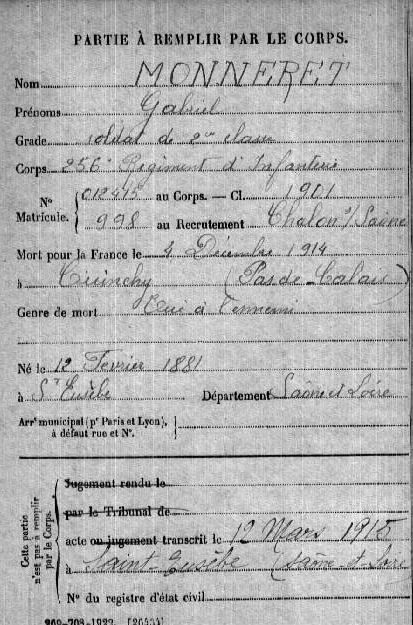 PARTIE À REMPLIR PAR LE CORPS.
Nom MONNERET
Prénoms Gabriel
Grade soldat de 2me classe
Corps 256e Régiment d'Infanterie
N° Matricule. 012475 au Corps. — Cl. 1901
998 au Recrutement Chalon s/ Saône
Mort pour la France le 4 Décembre 1914
à Cuinchy (Pas de Calais)
Genre de mort Tué à l'ennemi
Né le 12 Février 1881
à St Eusèbe Département Saône et Loire
Arrt municipal (pr Paris et Lyon),
à défaut rue et N°.
Cette partie n'est pas à remplir par le Corps.
Jugement rendu le
par le Tribunal de
acte ou jugement transcrit le 12 Mars 1915
à Saint Eusèbe (Saône et Loire
N° du registre d'état civil